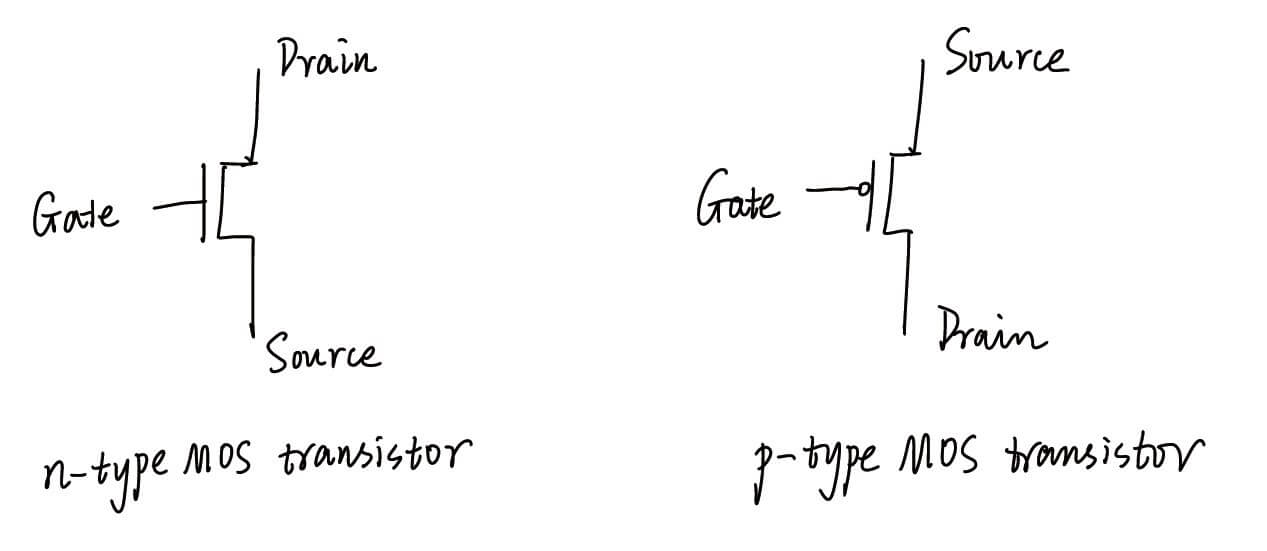 Drain
Gate
Source
n-type MOS transistor
Source
Gate
Drain
p-type MOS transistor